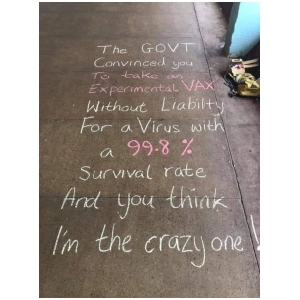 The GOVT
Convinced you
To take an
Experimental VAX
Without Liabilty
For a Virus with
a 99.8 %
Survival rate
And you think
I'm the crazy one!